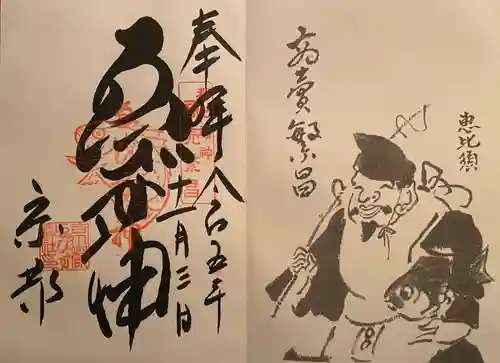 恵比須
商賣繁昌
奉拝 令和五年十一月三日
ゑびす神
京都